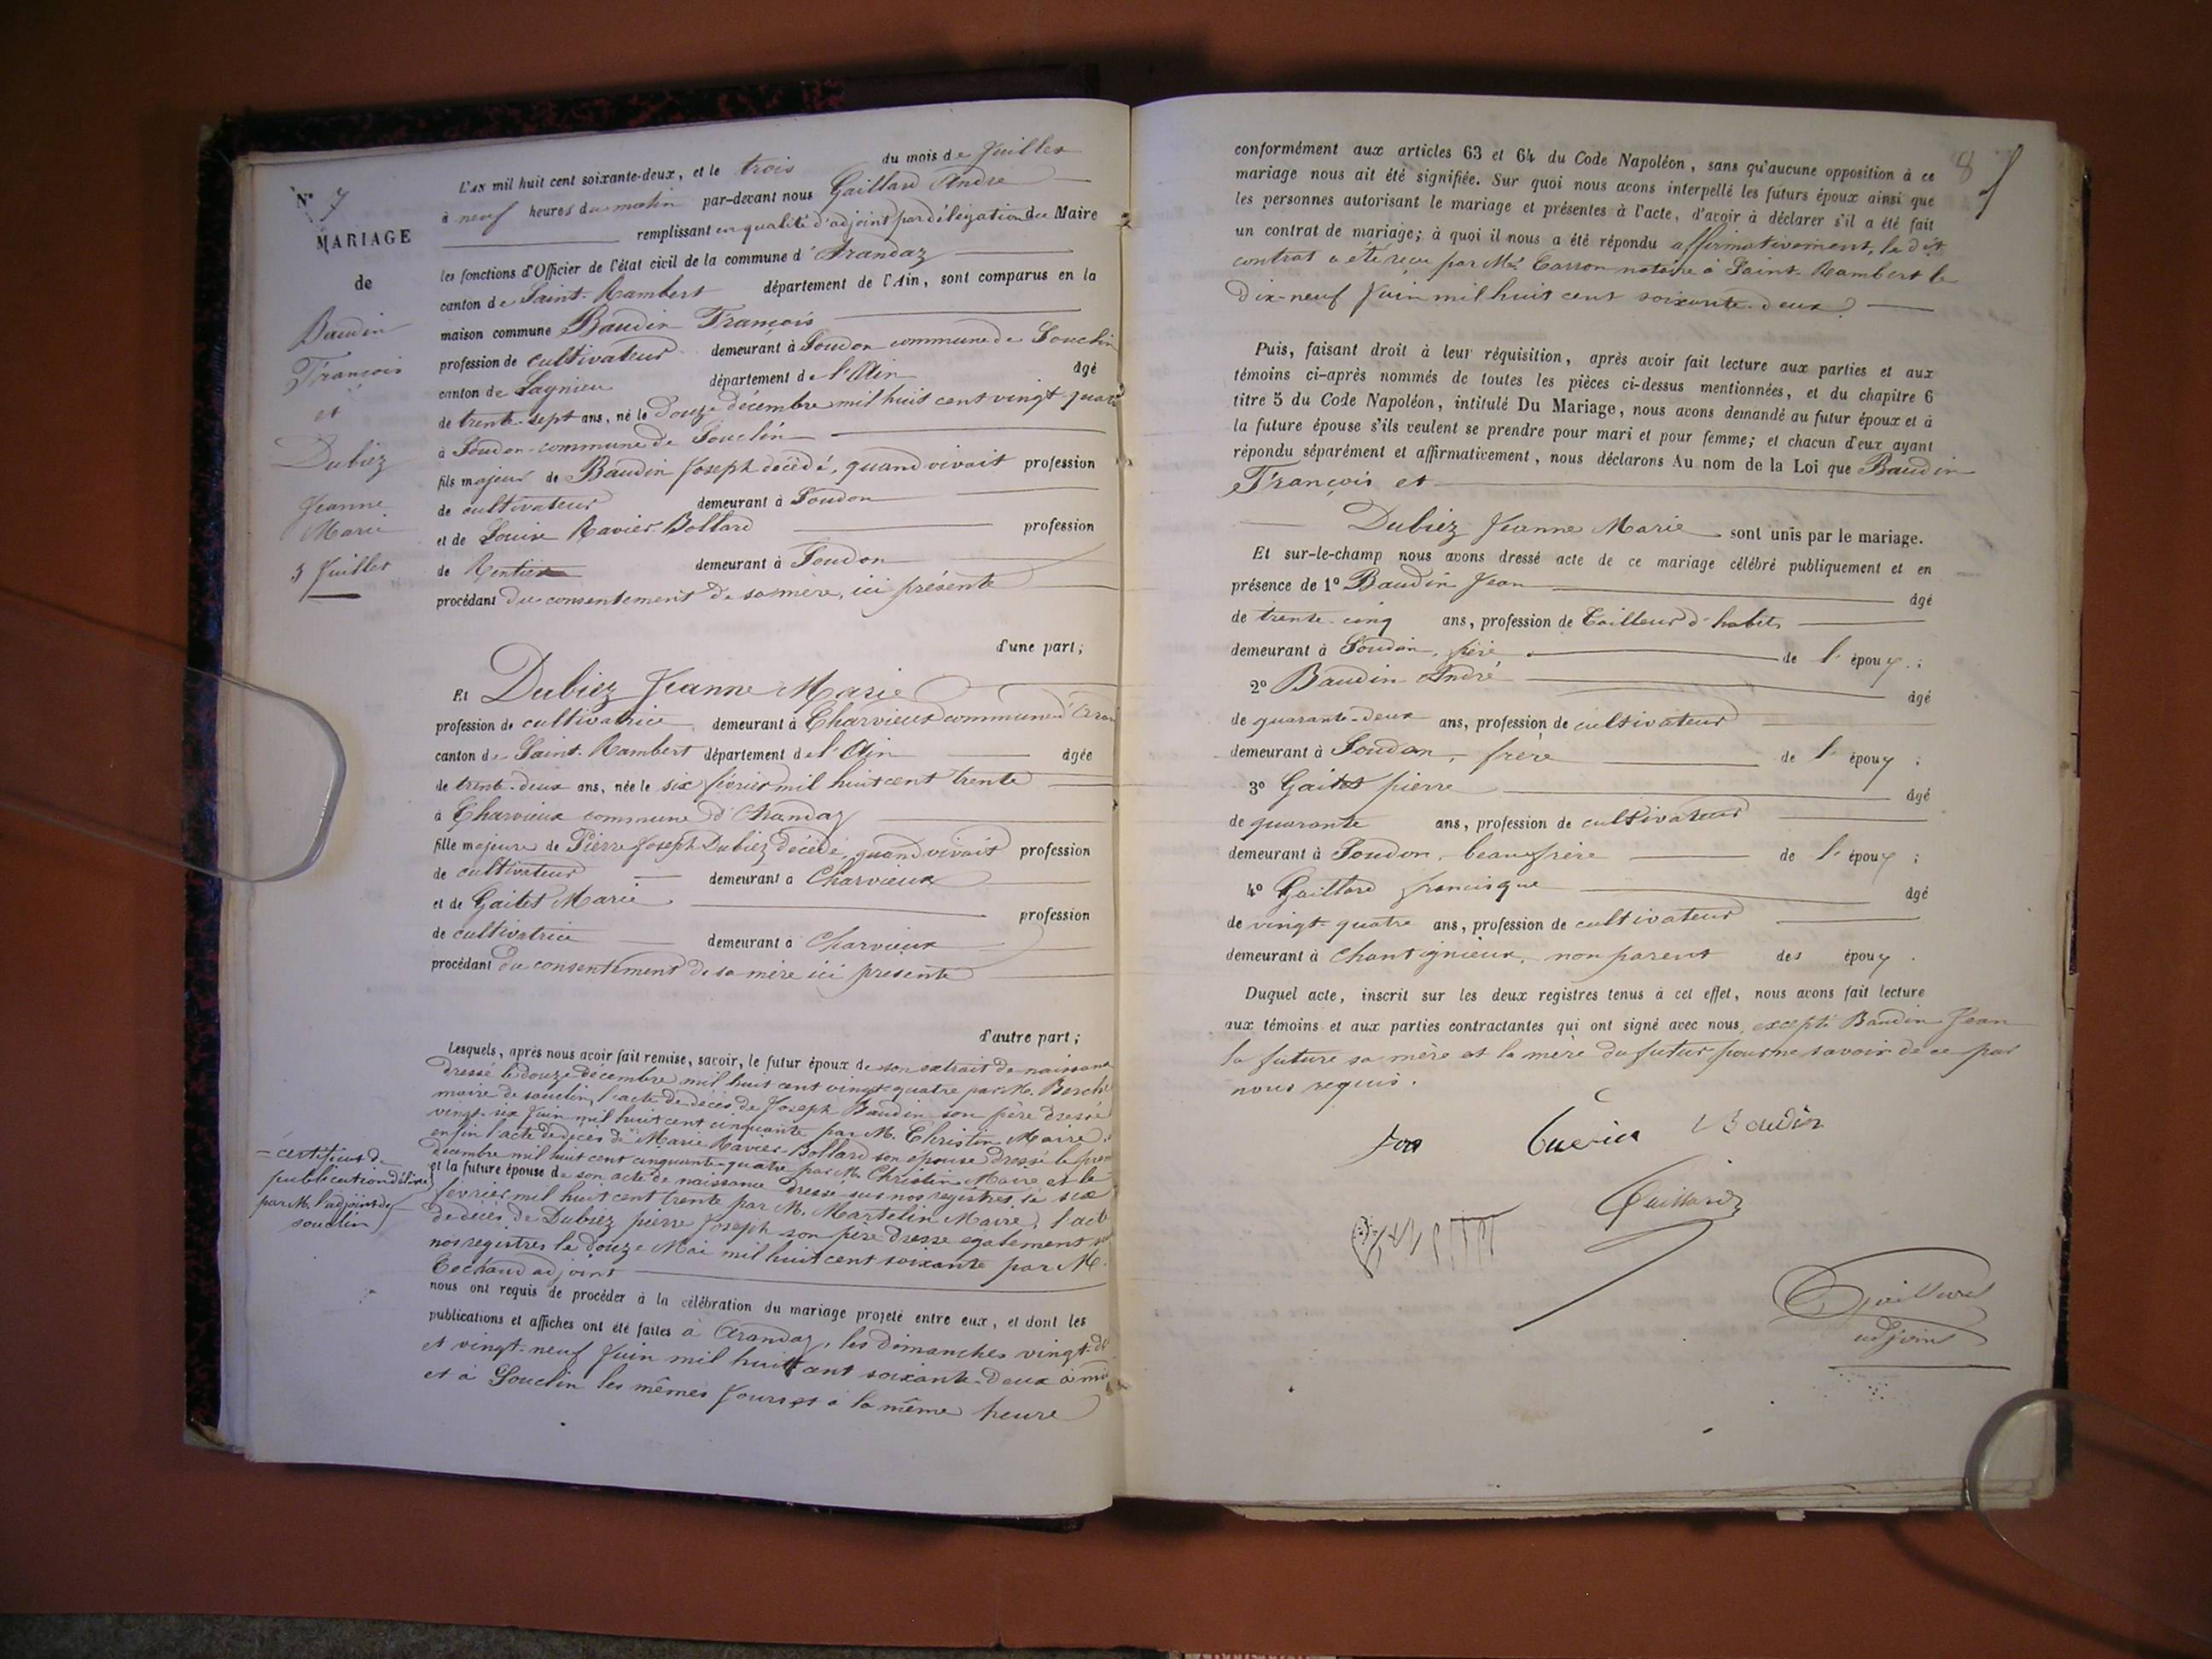 N° 7
MARIAGE
de
Baudin
François
et
Dubiez
Jeanne
Marie
3 Juillet
L'AN mil huit cent soixante-deux, et le trois du mois de Juillet
à neuf heures du matin par-devant nous Gaillard André
remplissant en qualité d'adjoint par délégation du Maire
les fonctions d'Officier de l'état civil de la commune d'Arandaz
canton de Saint-Rambert département de l'Ain, sont comparus en la
maison commune Baudin François
profession de cultivateur demeurant à Soudon commune de Souclin
canton de Lagnieu département de l'Ain âgé
de trente-sept ans, né le douze décembre mil huit cent vingt quat
à Soudon commune de Souclin
fils majeur de Baudin Joseph décédé, quand vivait profession
de cultivateur demeurant à Soudon
et de Louise Ravier-Bollard profession
de demeurant à Soudon
procédant du consentement de sa mère, ici présente
d'une part;
Et Dubiez Jeanne Marie
profession de cultivatrice demeurant à Charvieux commune d'Aran
canton de Saint-Rambert département de l'Ain âgée
de trente-deux ans, née le six février mil huit cent trente
à Charvieux commune d'Arandaz
fille majeure de Pierre Joseph Dubiez décédé, quand vivait profession
de cultivateur demeurant à Charvieux
et de Gaitet Marie profession
de cultivatrice demeurant à Charvieux
procédant du consentement de sa mère ici présente
d'autre part;
Lesquels, après nous avoir fait remise, savoir, le futur époux de son extrait de naissance
dressé le douze décembre mil huit cent vingt-quatre par M. Berche
maire de souclin, l'acte de décès de Joseph Baudin son père dressé
vingt-six Juin mil huit cent cinquante par M. Christin Maire,
enfin l'acte de décès de Marie Ravier-Bollard son épouse dressé le prem
décembre mil huit cent cinquante-quatre par M. Christin Maire et le
= certificat de
publication délivré
par M. l'adjoint de
souclin
et la future épouse de son acte de naissance dressé sur nos registres le six
février mil huit cent trente par M. Martelin Maire, l'acte
de décès de Dubiez pierre Joseph son père dressé également sur
nos registres le douze Mai mil huit cent soixante par M.
Cochaud adjoint
nous ont requis de procéder à la célébration du mariage projeté entre eux, et dont les
publications et affiches ont été faites à Arandaz, les dimanches vingt-d
et vingt-neuf Juin mil huit cent soixante-deux à mi
et à Souclin les mêmes Jours et à la même heure
8
conformément aux articles 63 et 64 du Code Napoléon, sans qu'aucune opposition à ce
mariage nous ait été signifiée. Sur quoi nous avons interpellé les futurs époux ainsi que
les personnes autorisant le mariage et présentes à l'acte, d'avoir à déclarer s'il a été fait
un contrat de mariage; à quoi il nous a été répondu affirmativement, le dit
contrat a été reçu par Me Carron notaire à Saint-Rambert le
dix-neuf Juin mil huit cent soixante-deux
Puis, faisant droit à leur réquisition, après avoir fait lecture aux parties et aux
témoins ci-après nommés de toutes les pièces ci-dessus mentionnées, et du chapitre 6
titre 5 du Code Napoléon, intitulé Du Mariage, nous avons demandé au futur époux et à
la future épouse s'ils veulent se prendre pour mari et pour femme; et chacun d'eux ayant
répondu séparément et affirmativement, nous déclarons Au nom de la Loi que Baudin
François et
Dubiez Jeanne Marie sont unis par le mariage.
Et sur-le-champ nous avons dressé acte de ce mariage célébré publiquement et en
présence de 1° Baudin Jean âgé
de trente-cinq ans, profession de Tailleur d'habits
demeurant à Soudon, frère de l' époux;
2° Baudin André âgé
de quarante-deux ans, profession de cultivateur
demeurant à Soudon, frère de l' époux;
3° Gaitet pierre âgé
de quarante ans, profession de cultivateur
demeurant à Soudon, beaufrère de l' époux;
4° Gaillard francisque âgé
de vingt-quatre ans, profession de cultivateur
demeurant à Chantignieux, non parent des époux.
Duquel acte, inscrit sur les deux registres tenus à cet effet, nous avons fait lecture
aux témoins et aux parties contractantes qui ont signé avec nous, excepté Baudin Jean
la future sa mère et la mère du futur pour ne savoir de ce par
nous requis.
Baudin
Gaillard
Gaillard
adjoint